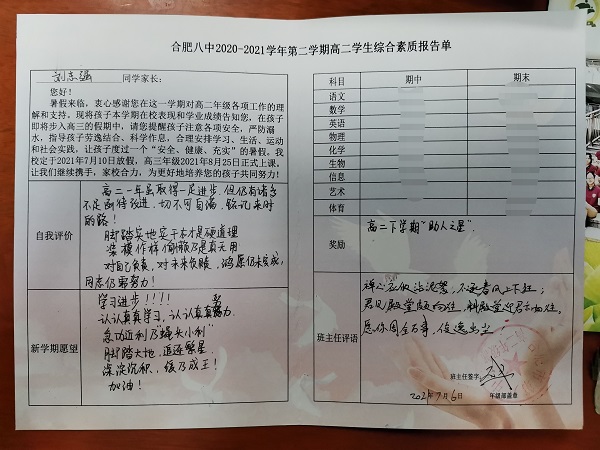 合肥八中2020-2021学年第二学期高二学生综合素质报告单
刘志强 同学家长:
您好!
暑假来临,衷心感谢您在这一学期对高二年级各项工作的理
解和支持。现将孩子本学期在校表现和学业成绩告知您,在孩子
即将步入高三的假期中,请您提醒孩子注意各项安全,严防溺
水,指导孩子劳逸结合、科学作息,合理安排学习、生活、运动
和社会实践,让孩子度过一个“安全、健康、充实”的暑假。我
校定于2021年7月10日放假,高三年级2021年8月25日正式上课。
让我们继续携手,家校合力,为更好地培养您的孩子共同努力!
自我评价
高二一年虽取得一定进步,但仍有诸多
不足断待改进,切不可自满,铭记来时
的路!
脚踏实地实干才是硬道理
装模作样偷懒乃是真无用
对自己负责,对未来负责,鸿愿仍未完成,
同志仍需努力!
新学期愿望
学习进步!!!!
认认真真学习,认认真真努力.
急功近利乃“蝇头小利”
脚踏大地,追逐繁星
深淀沉积,终乃成王!
加油!
科目 期中 期末
语文
数学
英语
物理
化学
生物
信息
艺术
体育
奖励
高二下学期“助人之星”.
班主任评语
君见殿堂
愿你周全万事,俊逸出尘!
班主任签字:
2021年7月6日 年级部盖章